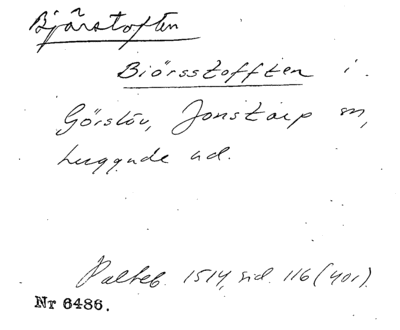 Bjärstoften
Biörsstofften i.
Görslöv, Jonstorp sn,
Luggude hd.
Palteb. 1514, sid. 116 (401).
Nr 6486.